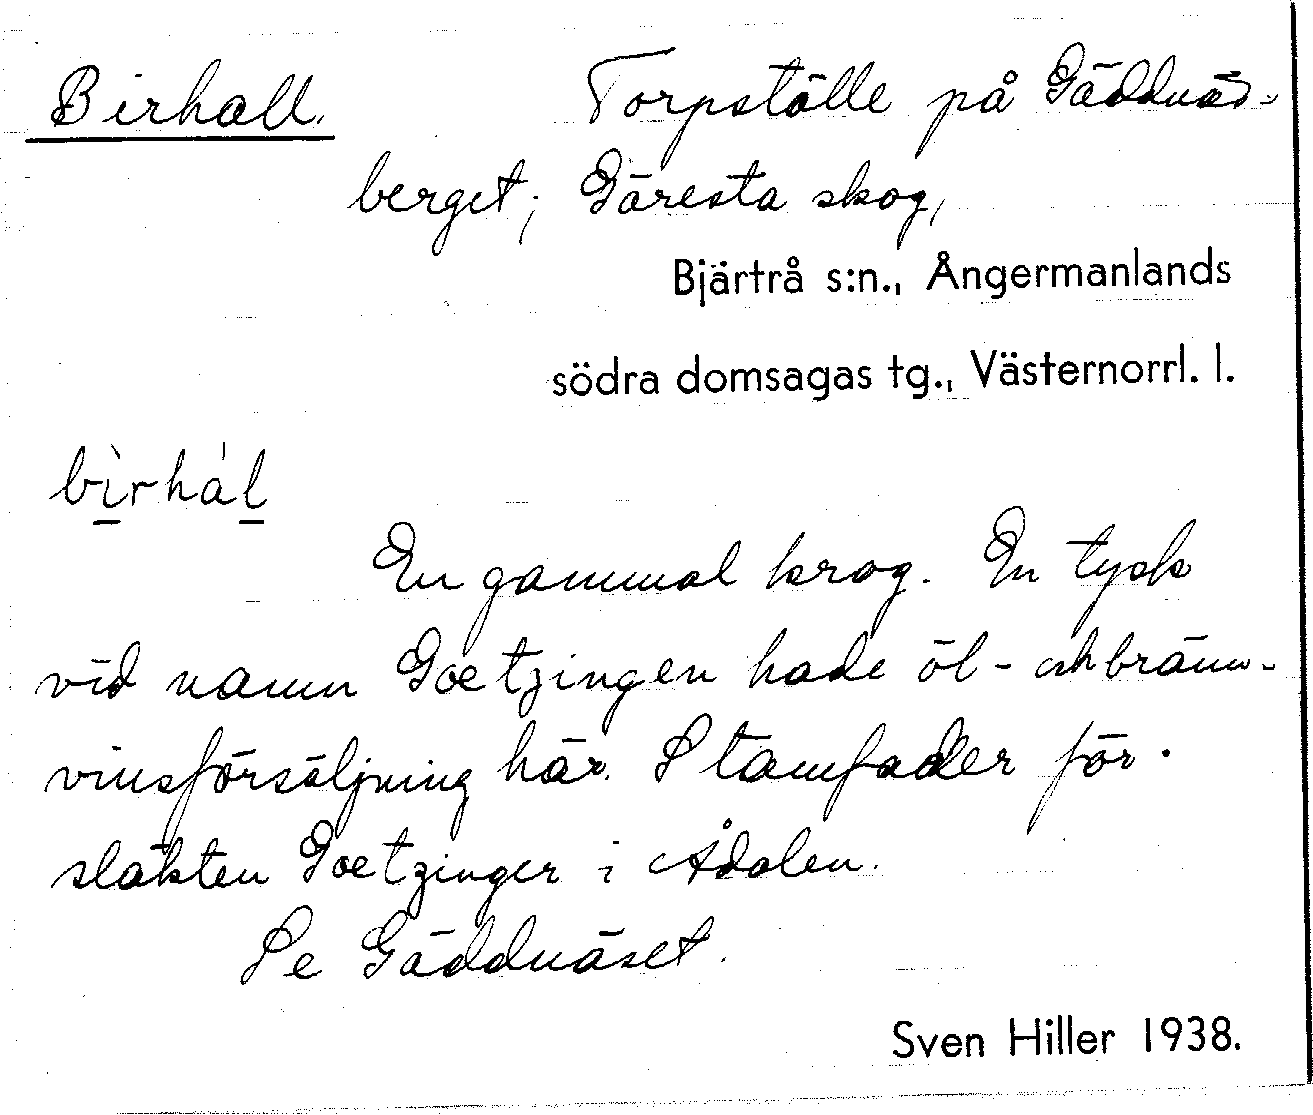 Birhall. Torpställe på Gäddnäs-
berget, Gäresta skog,
Bjärtrå s:n., Ångermanlands
södra domsagas tg., Västernorrl. l.
bìrhál
En gammal krog. En tysk
vid namn Goetzingen hade öl- och bränn-
vinsförsäljning här. Stamfader för
släkten Goetzinger i Ådalen.
Se Gäddnäset.
Sven Hiller 1938.